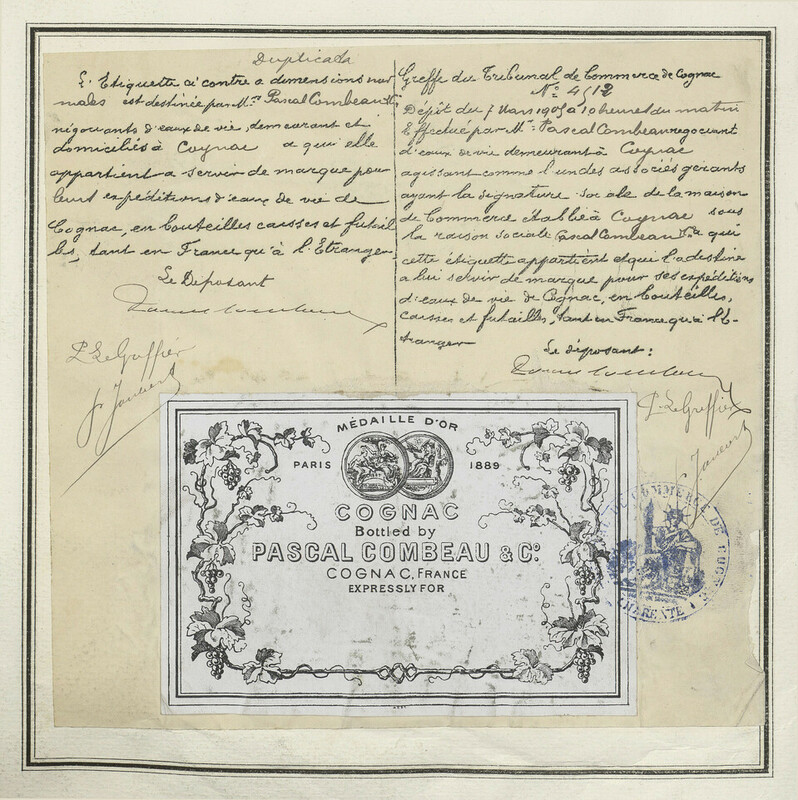 Duplicata
L'Etiquette ci contre a dimensions nor
males est destinée par Mr. Pascal Combeau &
négociants d'eaux de vie, demeurant et
domiciliés à Cognac a qui elle
appartient a servir de marque pour
leurs expéditions d'eaux de vie de
Cognac, en bouteilles caisses et futail
les, tant en France qu'à l'Etranger.
Le Déposant
P. Le Greffier
Greffe du Tribunal de Commerce de Cognac
Dépôt du 7 Mars 1905 a 10 heures du matin
Effectué par Mr. Pascal Combeau negociant
d'eaux de vie demeurant à Cognac
agissant comme l'un des associés gérants
ayant la signature sociale de la maison
de Commerce établie à Cognac sous
la raison sociale Pascal Combeau & a qui
cette étiquette appartient et qui l'a destine
a lui servir de marque pour ses expéditions
d'eaux de vie de Cognac, en bouteilles,
caisses et futailles, tant en France qu'a l'E-
tranger
Le déposant :
P. Le Greffier
MÉDAILLE D'OR
PARIS 1889
COGNAC
Bottled by
PASCAL COMBEAU & Co.
COGNAC, FRANCE
EXPRESSLY FOR
COMMERCE DE
CHARENTE